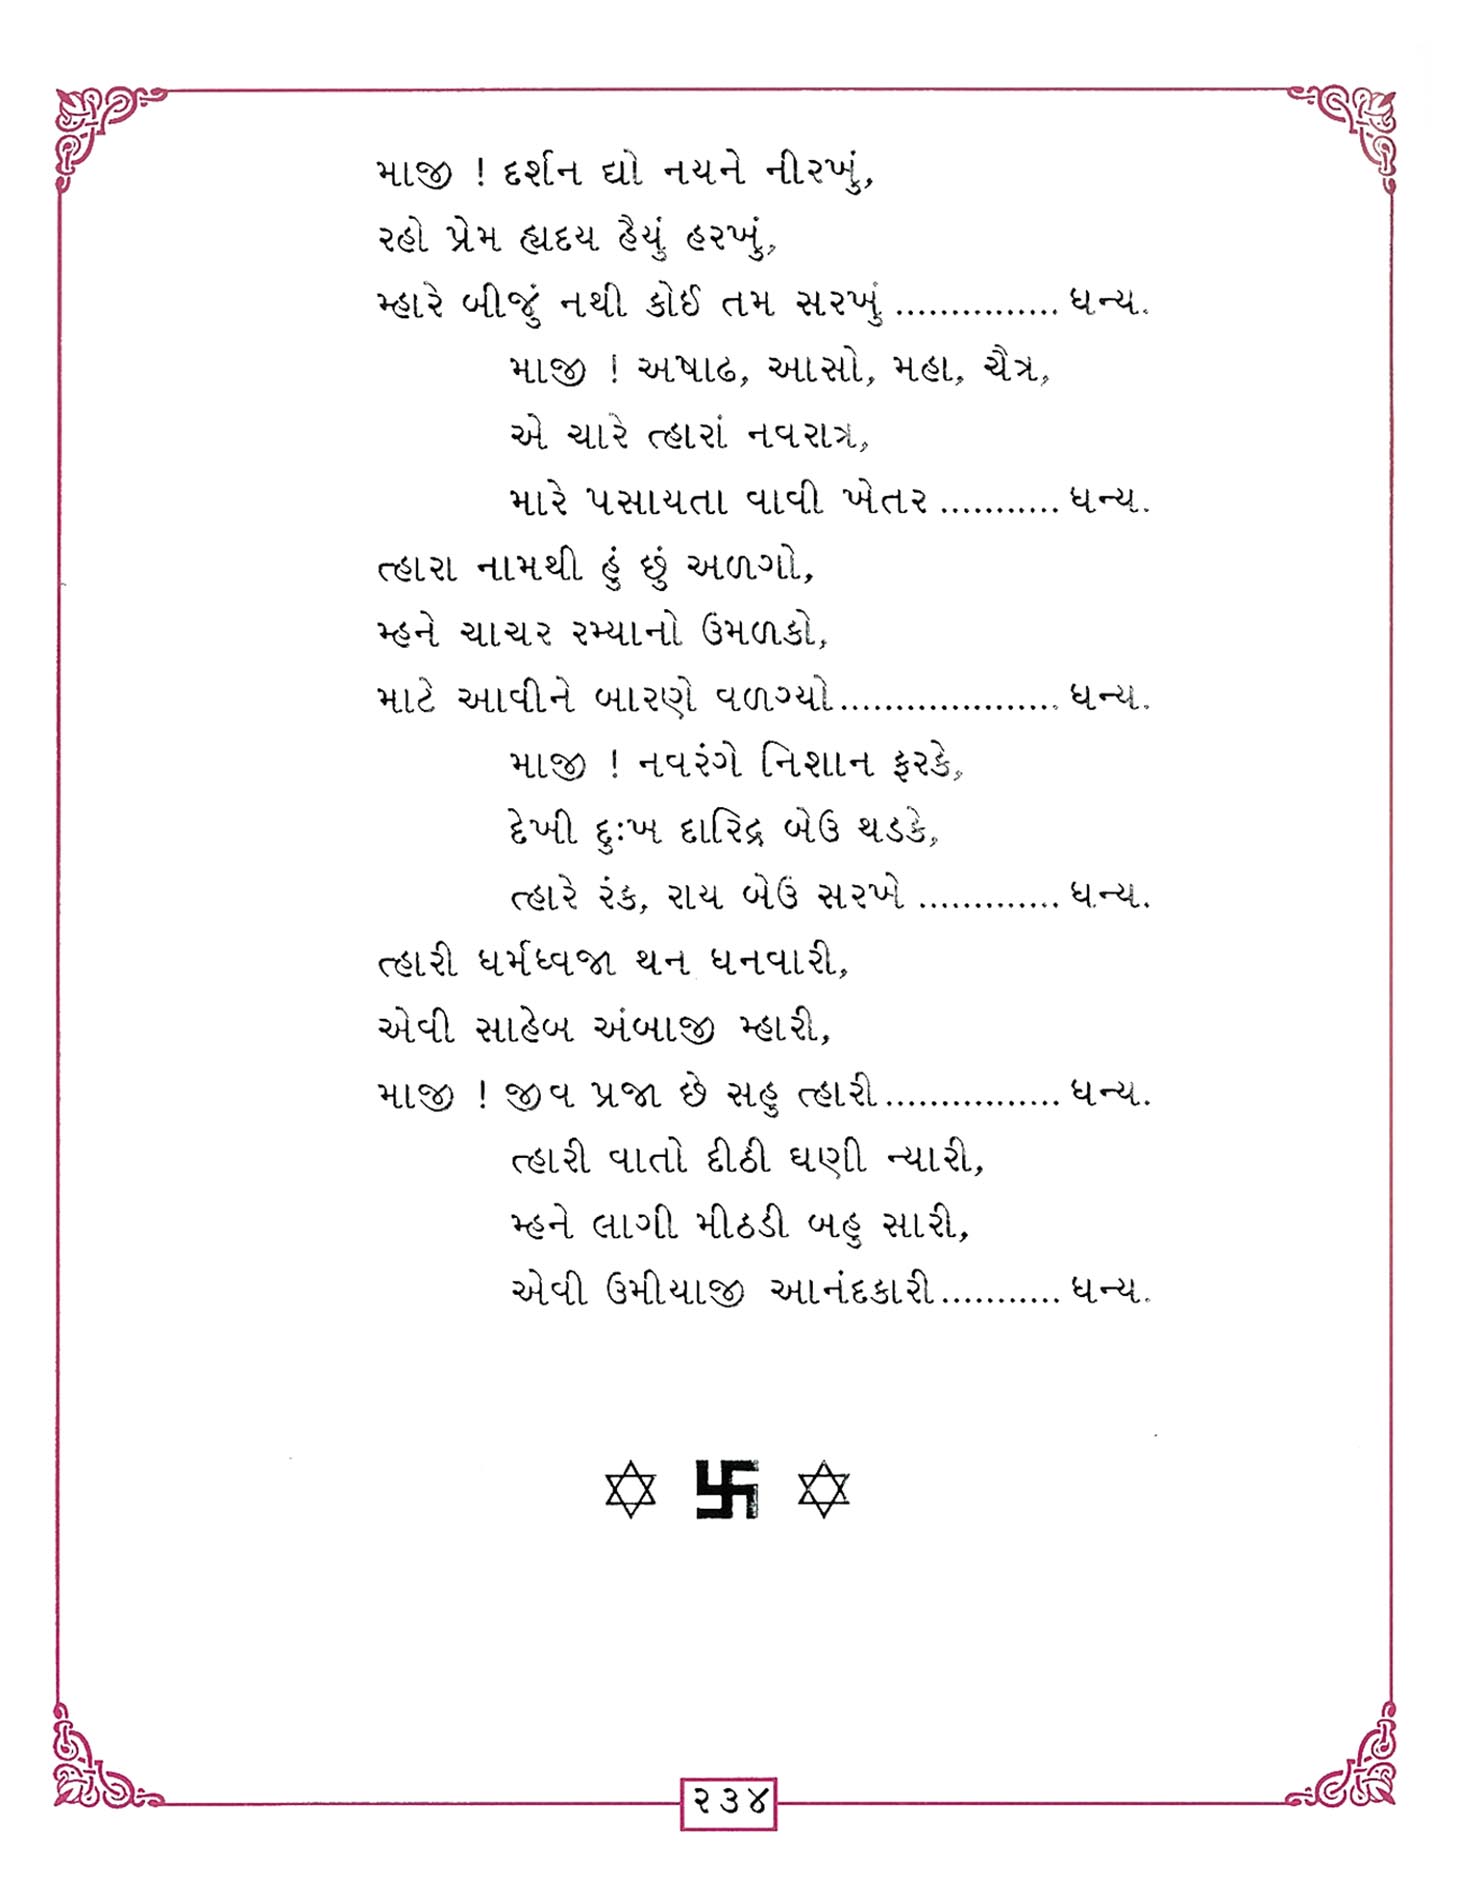 માજી ! દર્શન દ્યો નયને નીરખું,
રહો પ્રેમ હ્યદય હૈયું હરખું,
મ્હારે બીજું નથી કોઈ તમ સરખું ............... ધન્ય.
માજી ! અષાઢ, આસો, મહા, ચૈત્ર,
એ ચારે ત્હારાં નવરાત્ર,
મારે પસાયતા વાવી ખેતર ........... ધન્ય.
ત્હારા નામથી હું છું અળગો,
મ્હને ચાચર રમ્યાનો ઉમળકો,
માટે આવીને બારણે વળગ્યો.................... ધન્ય.
માજી ! નવરંગે નિશાન ફરકે,
દેખી દુઃખ દારિદ્ર બેઉ થડકે,
ત્હારે રંક, રાય બેઉ સરખે ............. ધન્ય.
ત્હારી ધર્મધ્વજા થન ધનવારી,
એવી સાહેબ અંબાજી મ્હારી,
માજી ! જીવ પ્રજા છે સહુ ત્હારી................ ધન્ય.
ત્હારી વાતો દીઠી ઘણી ન્યારી,
મ્હને લાગી મીઠડી બહુ સારી,
એવી ઉમીયાજી આનંદકારી........... ધન્ય.
૨૩૪